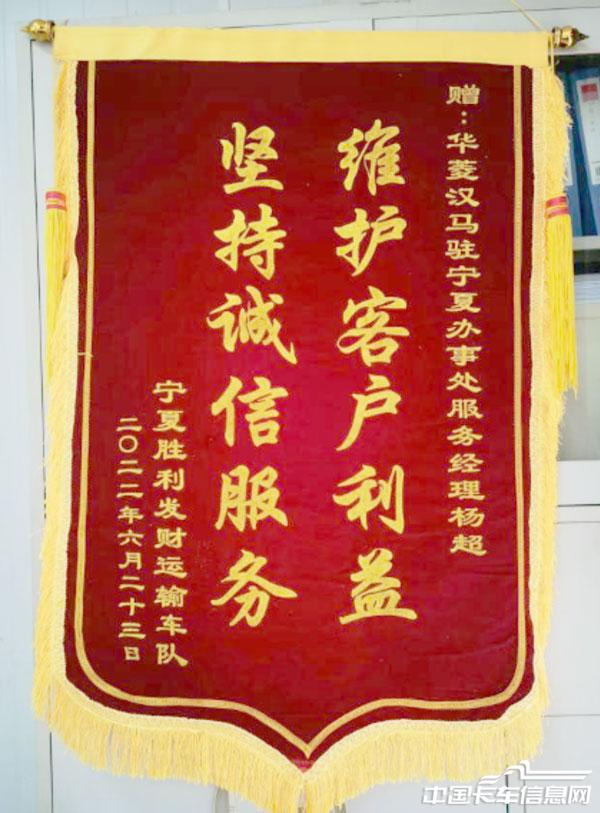 赠：华菱汉马驻宁夏办事处服务经理杨超
维护客户利益
坚持诚信服务
宁夏胜利发财运输车队
二〇二二年六月二十三日
中国卡车信息网